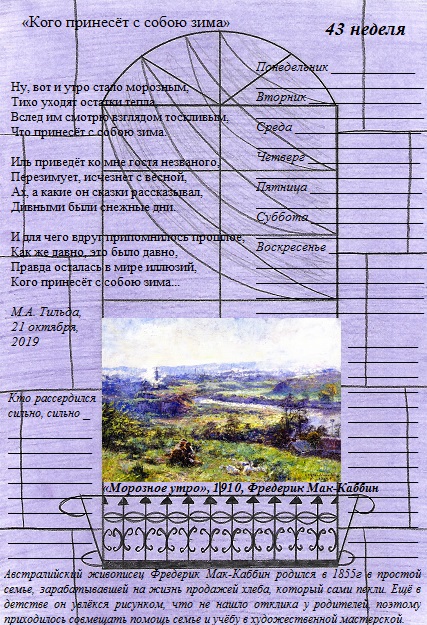 «Кого принесёт с собою зима»
43 неделя
Понедельник
Вторник
Среда
Четверг
Пятница
Суббота
Воскресенье
Ну, вот и утро стало морозным,
Тихо уходят остатки тепла,
Вслед им смотрю взглядом тоскливым,
Что принесёт с собою зима.
Иль приведёт ко мне гостя незваного,
Перезимует, исчезнет с весной,
Ах, а какие он сказки рассказывал,
Дивными были снежные дни.
И для чего вдруг припомнилось прошлое,
Как же давно, это было давно,
Правда осталась в мире иллюзий,
Кого принесёт с собою зима...
М.А. Тильда,
21 октября,
2019
Кто рассердился
сильно, сильно _
«Морозное утро», 1910, Фредерик Мак-Каббин
Австралийский живописец Фредерик Мак-Каббин родился в 1855г в простой
семье, зарабатывавшей на жизнь продажей хлеба, который сами пекли. Ещё в
детстве он увлёкся рисунком, что не нашло отклика у родителей, поэтому
приходилось совмещать помощь семье и учёбу в художественной мастерской.